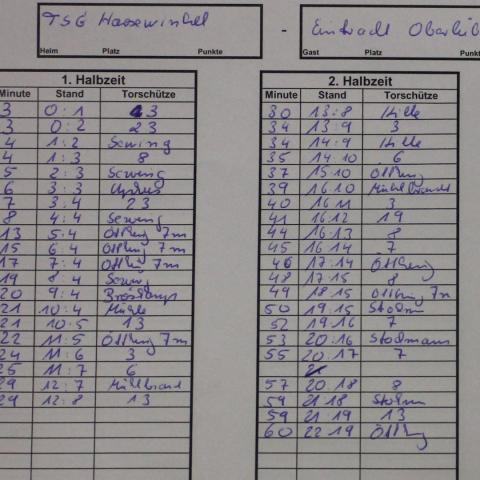 TSG Harsewinkel - Eintracht Oberlüb
Heim Platz Punkte Gast Platz Punkt
1. Halbzeit
Minute Stand Torschütze
3 0:1 3
3 0:2 23
4 1:2 Sewing
4 1:3 8
5 2:3 Sewing
6 3:3
7 3:4 23
8 4:4 Sewing
13 5:4 Öttking 7m
15 6:4 Öttking 7m
17 7:4 Öttking 7m
19 8:4 Sewing
20 9:4 Bröskamp
21 10:4 Mühle
21 10:5 13
22 11:5 Öttking 7m
24 11:6 3
25 11:7 6
29 12:7 Mühlbrand
29 12:8 13
2. Halbzeit
Minute Stand Torschütze
30 13:8 Hille
34 13:9 3
34 14:9 Hille
35 14:10 6
37 15:10 Öttking
39 16:10 Mühlbrandt
40 16:11 3
41 16:12 19
44 16:13 8
45 16:14 7
46 17:14 Öttking
48 17:15 8
49 18:15 Öttking 7m
50 19:15
52 19:16 7
53 20:16 Stockmann
55 20:17 7
21
57 20:18 8
59 21:18
59 21:19 13
60 22:19 Öttking